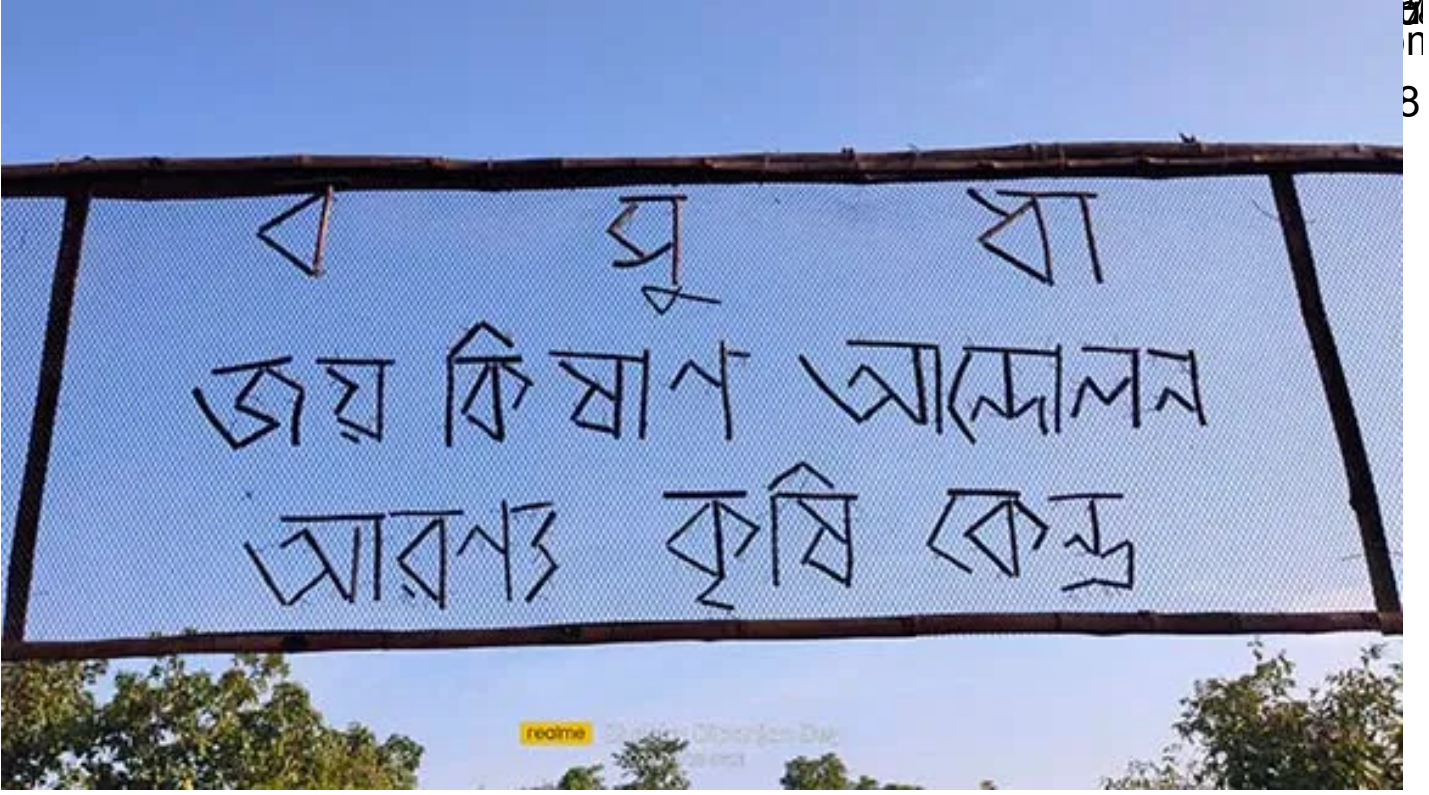 ব সু ধা
জয় কিষাণ আন্দোলন
আরণ্য কৃষি কেন্দ্র
realme
8